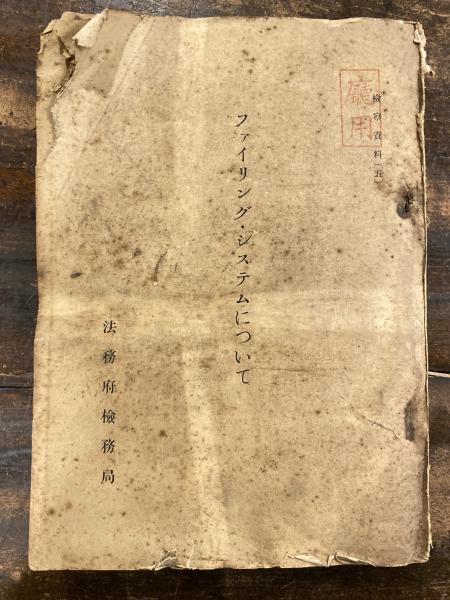 廳用
檢察資料〔五〕
ファイリング・システムについて
法務府檢務局